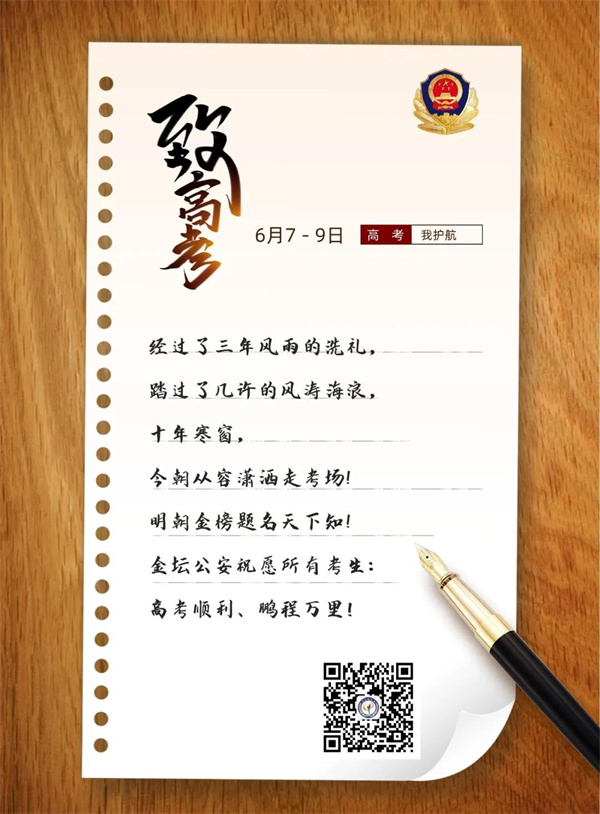 致高考
6月7-9日 高考 我护航
经过了三年风雨的洗礼，
踏过了几许的风涛海浪，
十年寒窗，
今朝从容潇洒走考场！
明朝金榜题名天下知！
金坛公安祝愿所有考生：
高考顺利、鹏程万里！